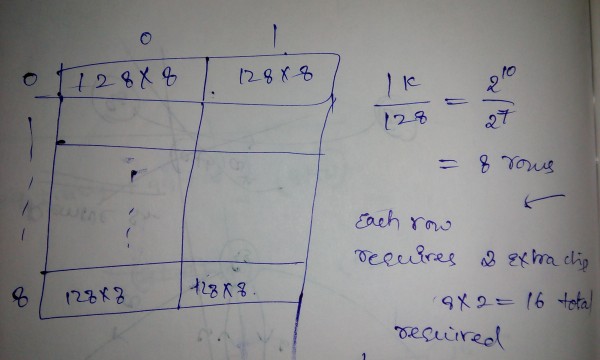 0 1
0 128×8 128×8
1
8 128×8 128×8
1K / 128 = 2^10 / 2^7
= 8 rows
Each row
requires 2 extra chip
8×2 = 16 total
required